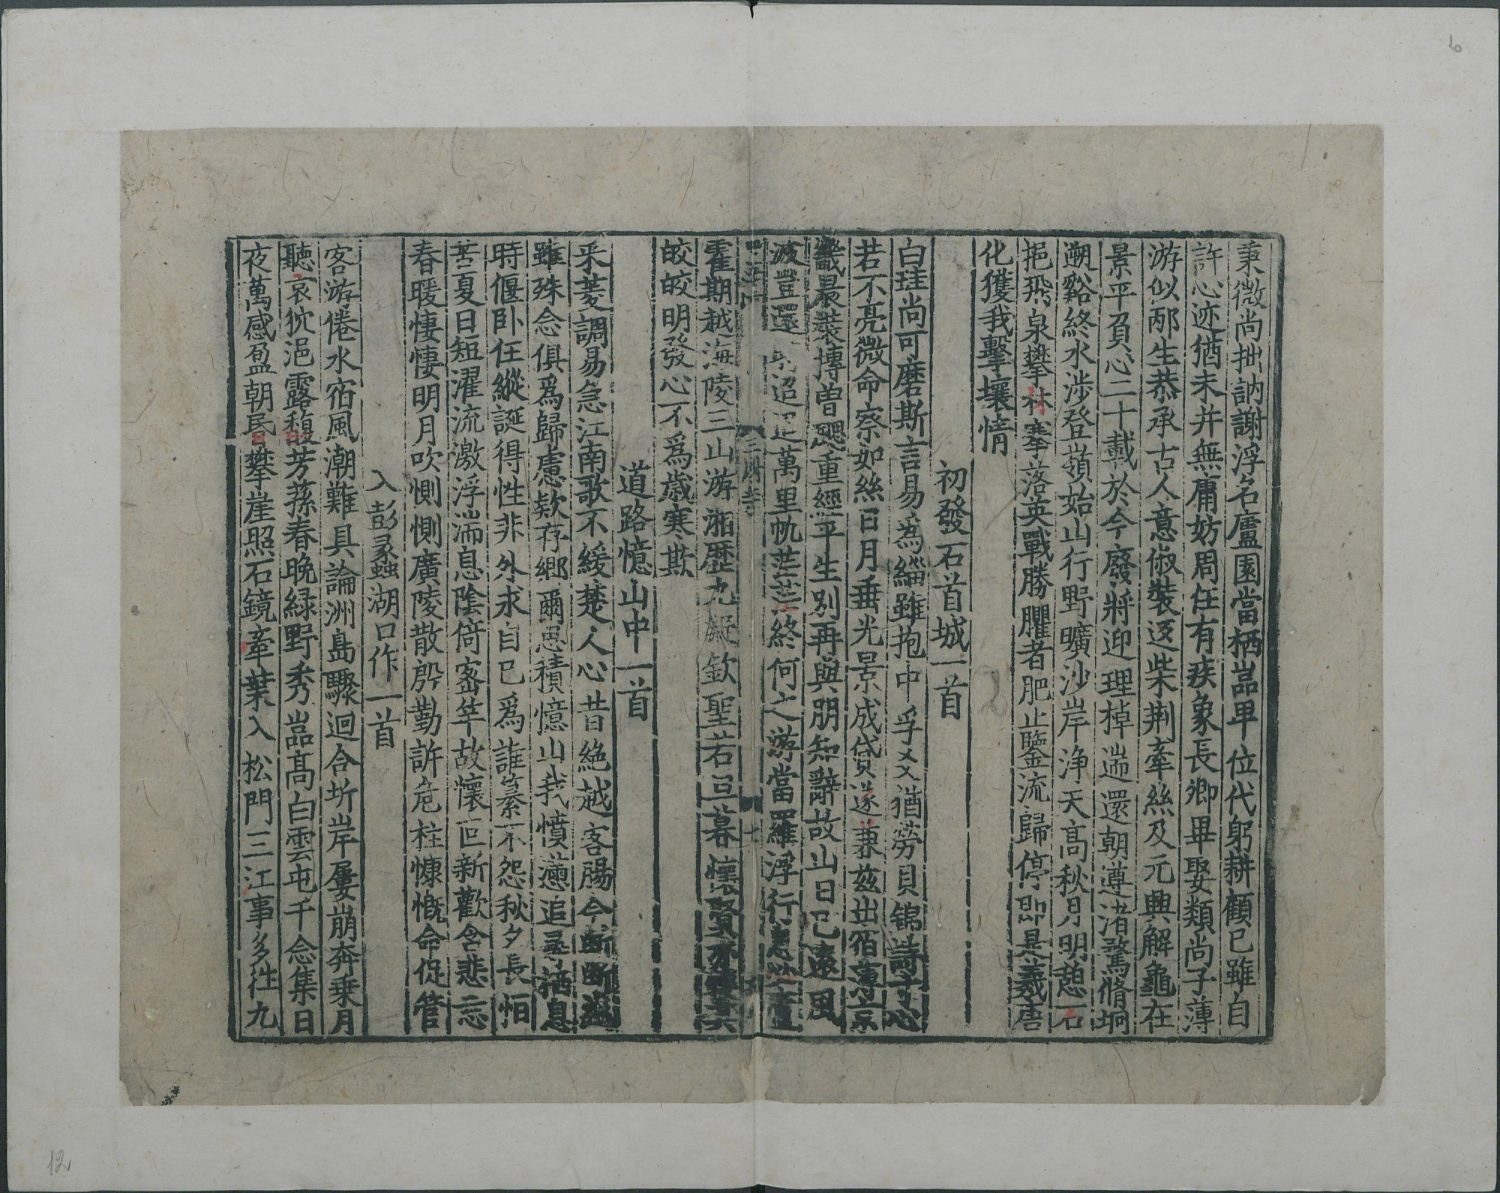 秉微尚拙訥謝浮名廬園當栖嵓卑位代躬耕顧已雖自
許心迹猶未并無庸妨周任有疾象長卿畢娶類尚子薄
游似邴生恭承古人意俶裝返柴荆牽絲及元興解龜在
景平負心二十載於今廢將迎理棹遄還朝遵渚騖脩坰
遡谿終水涉登嶺始山行野曠沙岸净天高秋月明憩石
挹飛泉攀林搴落英戰勝臞者肥止鑒流歸停即是羲唐
化獲我擊壤情
初發石首城一首
白珪尚可磨斯言易為緇雖抱中孚爻猶勞貝錦詩寸心
若不亮微命察如絲日月垂光景成貸遂兼兹出宿薄京
畿晨裝摶曽颸重經平生别再與朋知辭故山日已遠風
波豈還時迢迢萬里帆茫茫終何之游當羅浮行息必廬
霍期越海陵三山游湘歷九嶷欽聖若旦暮懷賢亦悽其
皎皎明發心不爲歲寒欺
道路憶山中一首
采菱調易急江南歌不緩楚人心昔絶越客腸今斷斷絶
雖殊念俱爲歸慮欵存郷爾思積憶山我憤懣追尋栖息
時偃卧任縱誕得性非外求自已爲誰纂不怨秋夕長恒
苦夏日短濯流激浮湍息陰倚宻竿故懷叵新歡含悲忘
春暖悽悽明月吹惻惻廣陵散殷勤訴危柱慷慨命促管
入彭蠡湖口作一首
客游倦水宿風潮難具論洲島驟迴合圻岸屢崩奔乗月
聽哀狖浥露馥芳蓀春晚緑野秀嵓髙白雲屯千念集日
夜萬感盈朝昬攀崖照石鏡牽葉入松門三江事多往九